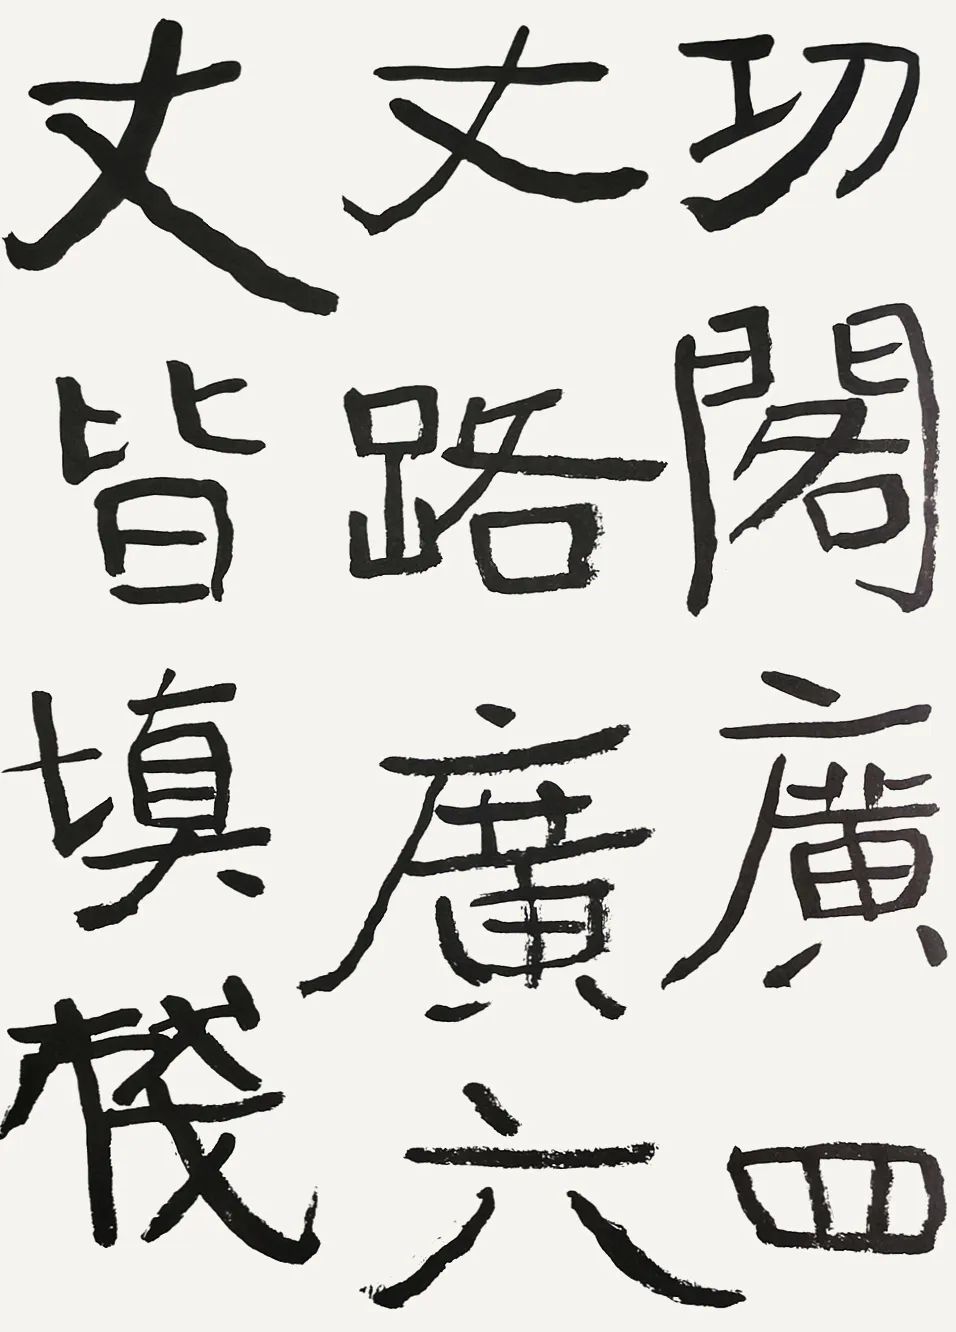 功閣廣四
丈路廣六
丈皆填棧